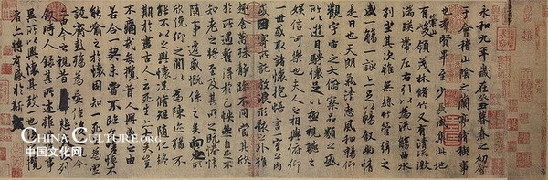 永和九年歲在癸丑暮春之初會
于會稽山陰之蘭亭脩稧事
也群賢畢至少長咸集此地
有崇山峻領茂林脩竹又有清流激
湍暎帶左右引以為流觴曲水
列坐其次雖無絲竹管弦之
盛一觴一詠亦足以暢敘幽情
是日也天朗氣清惠風和暢仰
觀宇宙之大俯察品類之盛
所以遊目騁懷足以極視聽之
娛信可樂也夫人之相與俯仰
一世或取諸懷抱悟言一室之內
或因寄所託放浪形骸之外雖
趣舍萬殊靜躁不同當其欣
於所遇暫得於己怏然自足不
知老之將至及其所之既惓情
隨事遷感慨係之矣向之所
欣俛仰之閒以為陳迹猶不
能不以之興懷況脩短隨化終
期於盡古人云死生亦大矣豈
不痛哉每攬昔人興感之由
若合一契未嘗不臨文嗟悼不
能喻之於懷固知一死生為虛
誕齊彭殤為妄作後之視今
亦由今之視昔悲夫故列
敘時人錄其所述雖世殊事
異所以興懷其致一也後之攬
者亦將有感於斯文
CHINA CULTURE.ORG
中国文化网